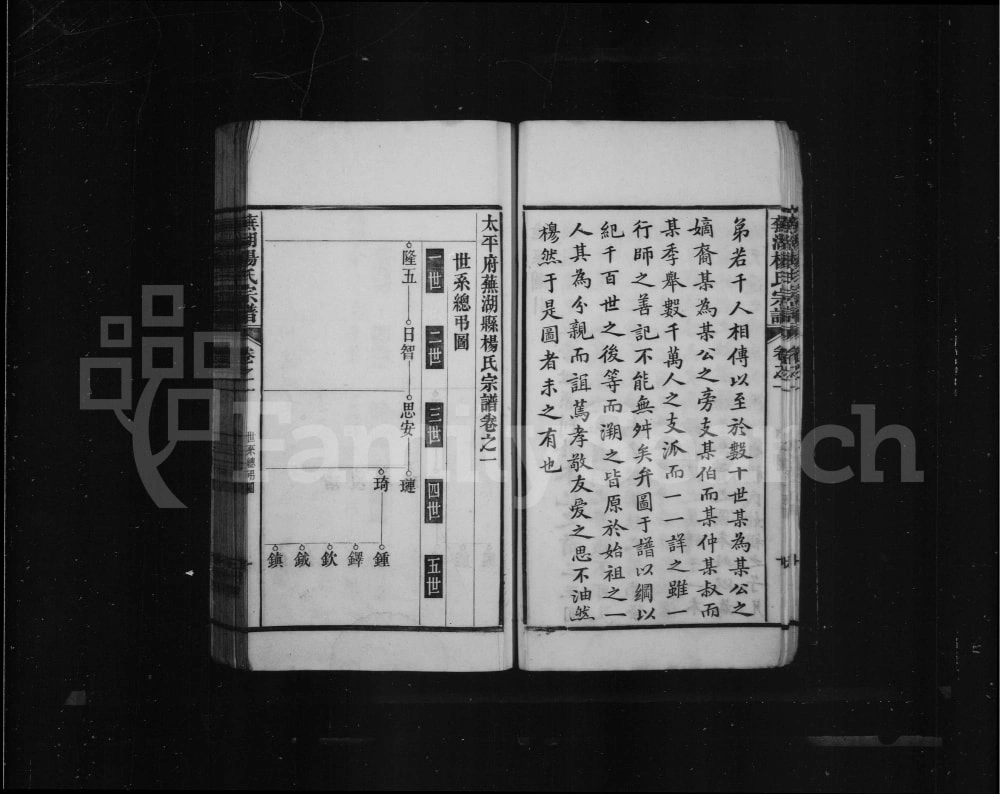 弟若千人相傳以至於數十世某為某公之
嫡裔某為某公之旁支某伯而某仲某叔而
某季舉數千萬人之支派而一一詳之雖一
行師之善記不能無舛矣弁圖于譜以綱以
紀千百世之後等而溯之皆原於始祖之一
人其為分親而誼篤孝敬友愛之思不油然
穆然于是圖者未之有也
太平府蕪湖縣楊氏宗譜卷之一
世系總弔圖
一世 二世 三世 四世 五世
隆五 日智 思安 璉
琦
鍾
鐸
欽
鉞
鎮
蕪湖楊氏宗譜 卷之一 世系總弔圖
FamilySearch